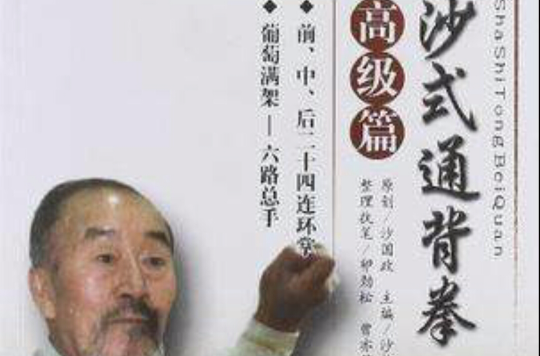 ShaShiTongBeiQuan
沙式通背拳
高级篇
原创/沙国政 主编/沙
整理执笔/邹劲松 曾亦
◆前、中、后二十四连环掌
◆葡萄满架—六路总手